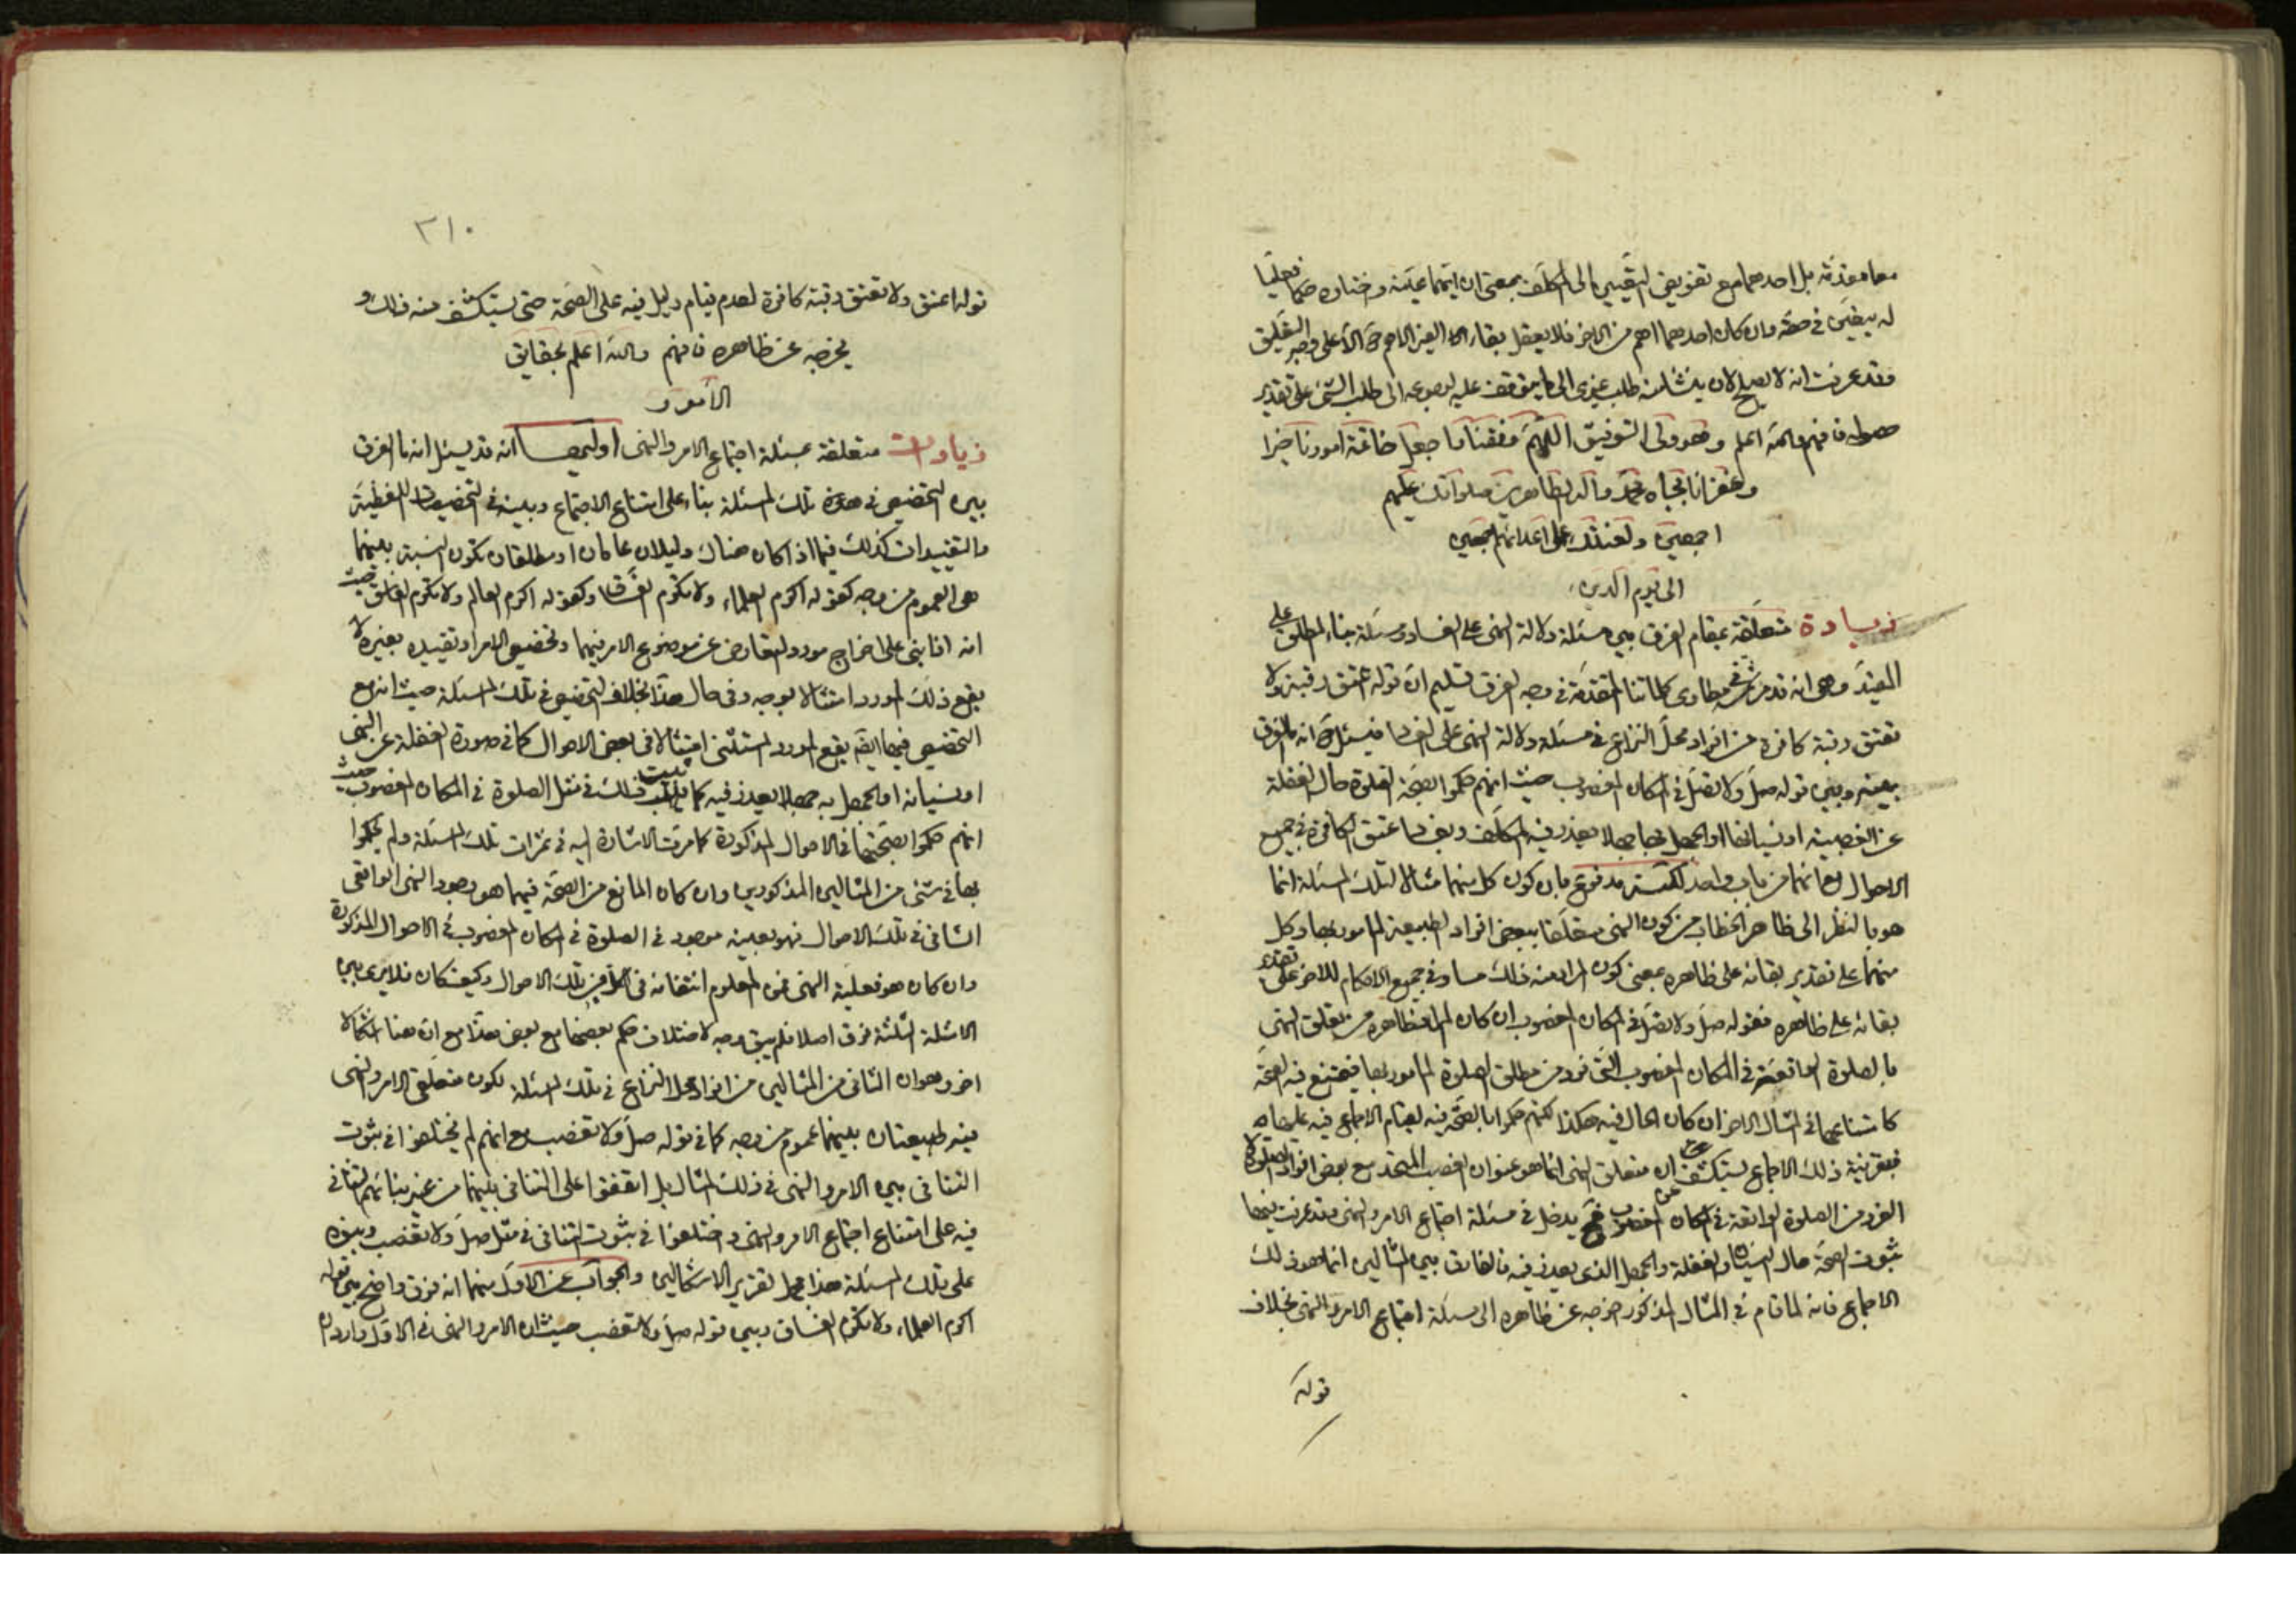 معا معوذته بل احدهما مع تفويض التعيين الى المكلف بمعنى ان ايتهما عينه واختاره صار فعليا
له بيقين في حقه وان كان احدهما اهم من الاخر فلا يعقل بقاء الامر الغير الاهم ح الا على وجه التعليق
وقد عرفت انه لا يصلح لان ينشأ منه طلب غيرى الى ما يتوقف عليه لرجوعه الى طلب الشئ على تقدير
حصوله فافهم والله اعلم وهو ولى التوفيق اللهم وفقنا واجعل خاتمة امورنا خيرا
واغفر لنا بجاه محمد وآله الطاهرين صلواتك عليهم
اجمعين ولعنتك على اعدائهم اجمعين
الى يوم الدين
زيادة متعلقة بمقام الفرق بين مسئلة دلالة النهى على الفساد ومسئلة بناء المطلق على
المقيد وهى انه قد مر في مطاوى كلماتنا المتقدمة في وجه الفرق تسليم ان قوله اعتق رقبة ولا
تعتق رقبة كافرة من افراد محل النزاع في مسئلة دلالة النهى على الفساد فيسئل ح انه ما الفرق
بينه وبين قوله صل ولا تصل في المكان المغصوب حيث انهم حكموا بصحة الصلوة حال الغفلة
عن الغصبية او نسيانها او الجهل بها جهلا يعذر فيه المكلف وبفساد عتق الكافرة في جميع
الاحوال مع انهما من باب واحد لكنه مدفوع بان كون كل منهما مثالا لتلك المسئلة انما
هو بالنظر الى ظاهر الخطاب من كون النهى متعلقا ببعض افراد الطبيعة المامور بها وكل
منهما على تقدير بقائه على ظاهره بمعنى كون المراد منه ذلك مساو في جميع الاحكام للاخر على تقدير
بقائه على ظاهره فقوله صل ولا تصل في المكان المغصوب ان كان المراد ظاهره من تعلق النهى
بالصلوة الواقعة في المكان المغصوب التى فرد من مطلق الصلوة المامور بها فيمتنع فيه الصحة
كامتناعها في المثال الاخر ان كان الحال فيه هكذا لكنهم حكموا بالصحة فيه لقيام الاجماع فيه عليها
فبقرينة ذلك الاجماع يستكشف عن ان متعلق النهى انما هو عنوان الغصب المتحد مع بعض افراد الصلوة
الفرد من الصلوة الواقعة في المكان المغصوب فح يدخل في مسئلة اجتماع الامر والنهى وقد عرفت فيها
ثبوت الصحة حال النسيان والغفلة والجهل الذى يعذر فيه فالفارق بين المثالين انما هو ذلك
الاجماع فانه لما قام في المثال المذكور اخرجه عن ظاهره الى مسئلة اجتماع الامر والنهى بخلاف
قوله
٣١٠
قوله اعتق ولا تعتق رقبة كافرة لعدم قيام دليل فيه على الصحة حتى يستكشف منه ذلك و
يخرجه عن ظاهره فافهم والله اعلم بحقايق
الأمور
زيادات متعلقة بمسئلة اجتماع الامر والنهى اوليها انه قد يسئل انه ما الفرق
بين التخصيص في هذه تلك المسئلة بناء على امتناع الاجتماع وبينه في التخصيصات اللفظية
والتقييدات كذلك فيما اذا كان هناك دليلان عامان او مطلقان تكون النسبة بينهما
هى العموم من وجه كقوله اكرم العلماء ولا تكرم الفساق وكقوله اكرم العالم ولا تكرم الفاسق حيث
انه اذا بنى على اخراج مورد التعارض عن موضوع الامر فيهما وتخصيص الامر او تقييده بغيره لا
يقع ذلك المورد امتثالا بوجه وفى حال هذا بخلاف التخصيص في تلك المسئلة حيث انه مع
التخصيص فيها ايضا يقع المورد المستثنى امتثالا في بعض الاحوال كما في صورة الغفلة عن النهى
او نسيانه او الجهل به جهلا يعذر فيه كما ثبت ذلك في مثل الصلوة في المكان المغصوب حيث
انهم حكموا بصحتها في الاحوال المذكورة كما مرت الاشارة اليه في ثمرات تلك المسئلة ولم يحكموا
بها في شئ من المثالين المذكورين وان كان المانع من الصحة فيهما هو وجود النهى الواقعى
الشانى في تلك الاحوال فهو بعينه موجود في الصلوة في المكان المغصوب في الاحوال المذكورة
وان كان هو فعلية النهى فمن المعلوم انتفائه في كل من تلك الاحوال وكيف كان فلا يرى بين
الامثلة الثلثة فرق اصلا فلم يبق وجه لاختلاف حكم بعضها مع بعض هذا مع ان هنا اشكالا
اخر وهو ان الثانى من المثالين من افراد محل النزاع في تلك المسئلة لكون متعلق الامر والنهى
فيه طبيعتان بينهما عموم من وجه كما في قوله صل ولا تغصب مع انهم لم يختلفوا في ثبوت
التنافى بين الامر والنهى في ذلك المثال بل اتفقوا على التنافى بينهما من غير بنائهم التنافى
فيه على امتناع اجتماع الامر والنهى واختلفوا في ثبوت التنافى في مثل صل ولا تغصب وبنوه
على تلك المسئلة هذا محل تقرير الاشكالين والجواب عن الاول منهما انه فرق واضح بين قوله
اكرم العلماء ولا تكرم الفساق وبين قوله صل ولا تغصب حيث ان الامر والنهى في الاول واردان